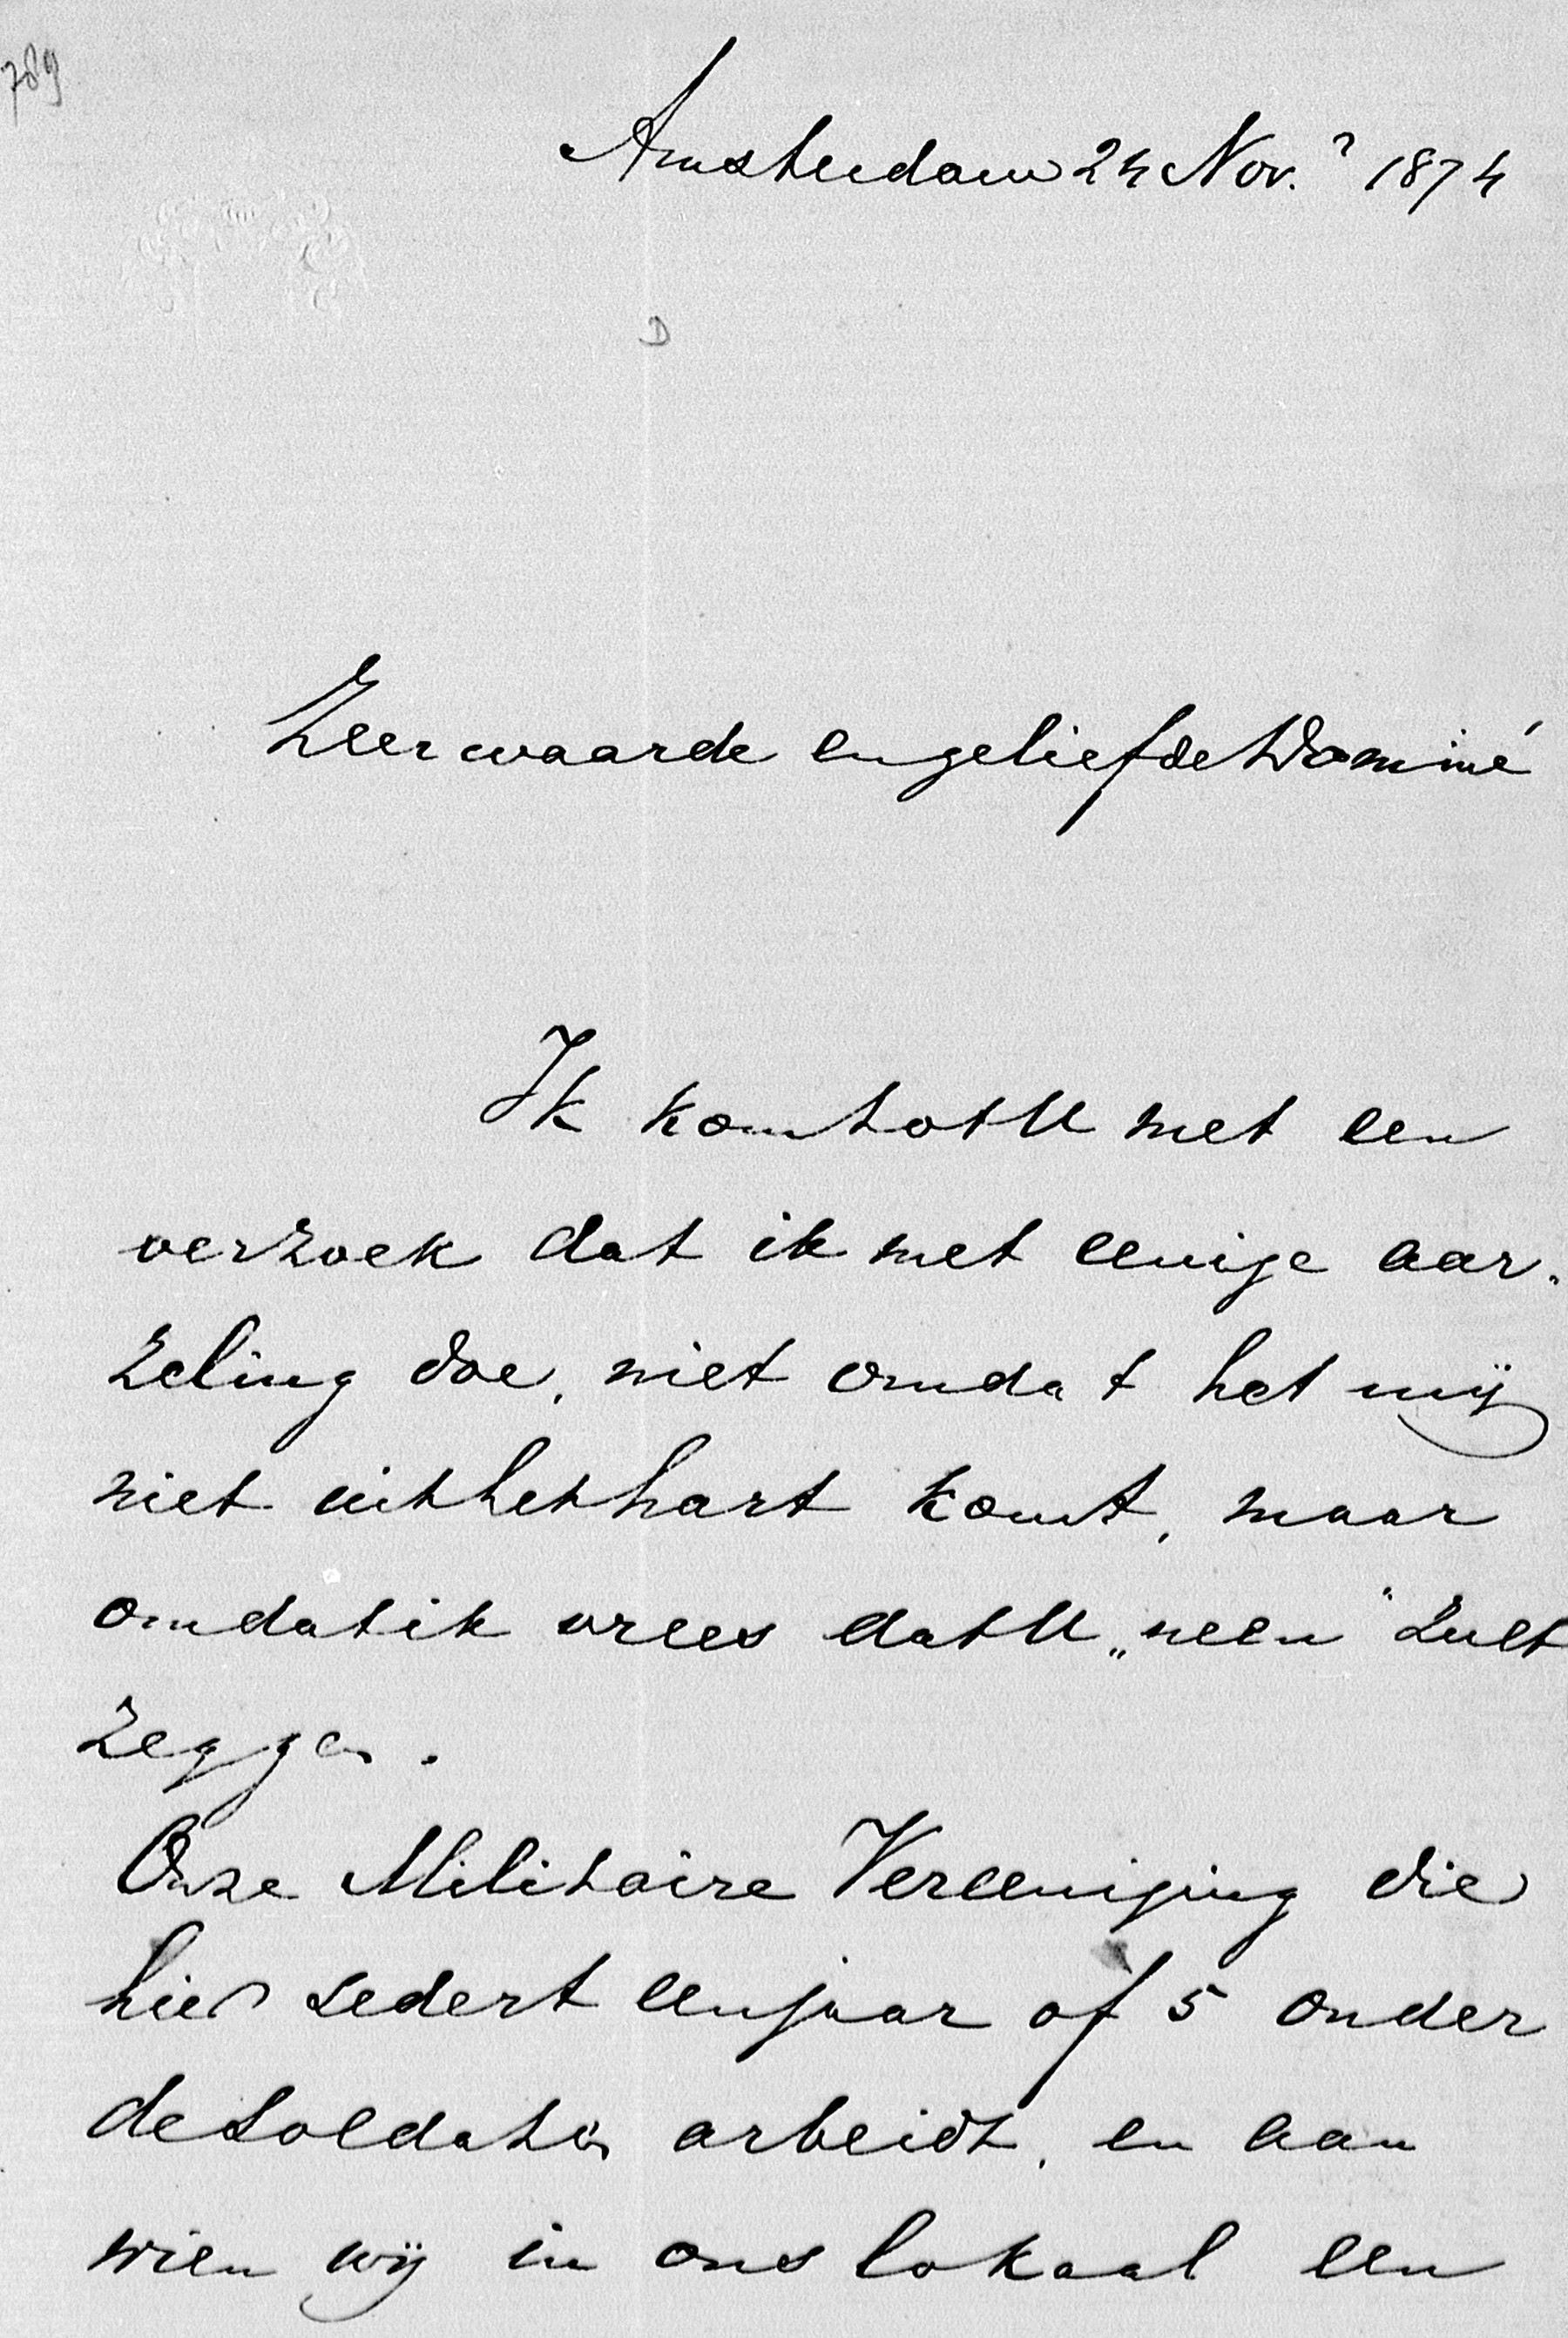 789
Amsterdam 24 Nov.r 1874
D
Zeer waarde en geliefde Dominé
Ik kom tot U met een
verzoek dat ik met eenige aar-
zeling doe, niet omdat het mij
niet uit het hart komt, maar
omdat ik vrees dat U „neen" zult
zeggen.
Onze Militaire Vereeniging die
hier sedert een jaar of 5 onder
de soldaten arbeidt, en aan
wien wij in ons lokaal een